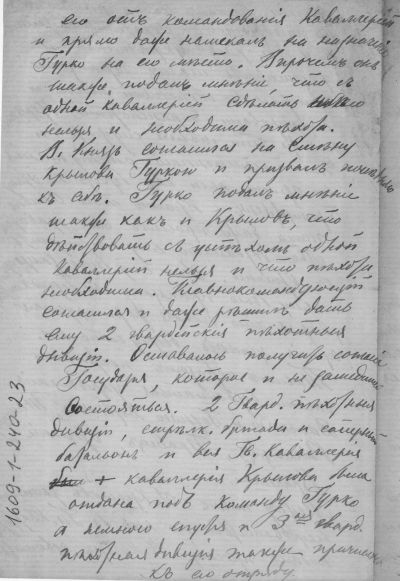 его отъ командованія Кавалеріей
и прямо даже намекалъ на назначеніе
Гурко на его мѣсто. Впрочемъ онъ
также подалъ мнѣніе, что съ
одной Кавалеріей сдѣлать
нельзя и необходима пѣхота.
В. Князь согласился на смѣну
Крылова Гуркою и призвалъ
къ себѣ. Гурко подалъ мнѣніе
также какъ и Крыловъ, что
дѣйствовать съ успѣхомъ одной
Кавалеріей нельзя и что пѣхота
необходима. Главнокомандующій
согласился и даже рѣшилъ дать
ему 2 гвардейскія пѣхотныя
дивизіи. Оставалось получить согласіе
Государя, которое и не замедлило
состояться. 2 Гвард. пѣхотныя
дивизіи, стрѣлк. бригада и саперный
баталіонъ и вся Гв. Кавалерія
+ кавалерія Крылова была
отдана подъ команду Гурко
а немного спустя и 3ая гвард.
пѣхотная дивизія также причислена
къ его отряду
1609-1-240-23